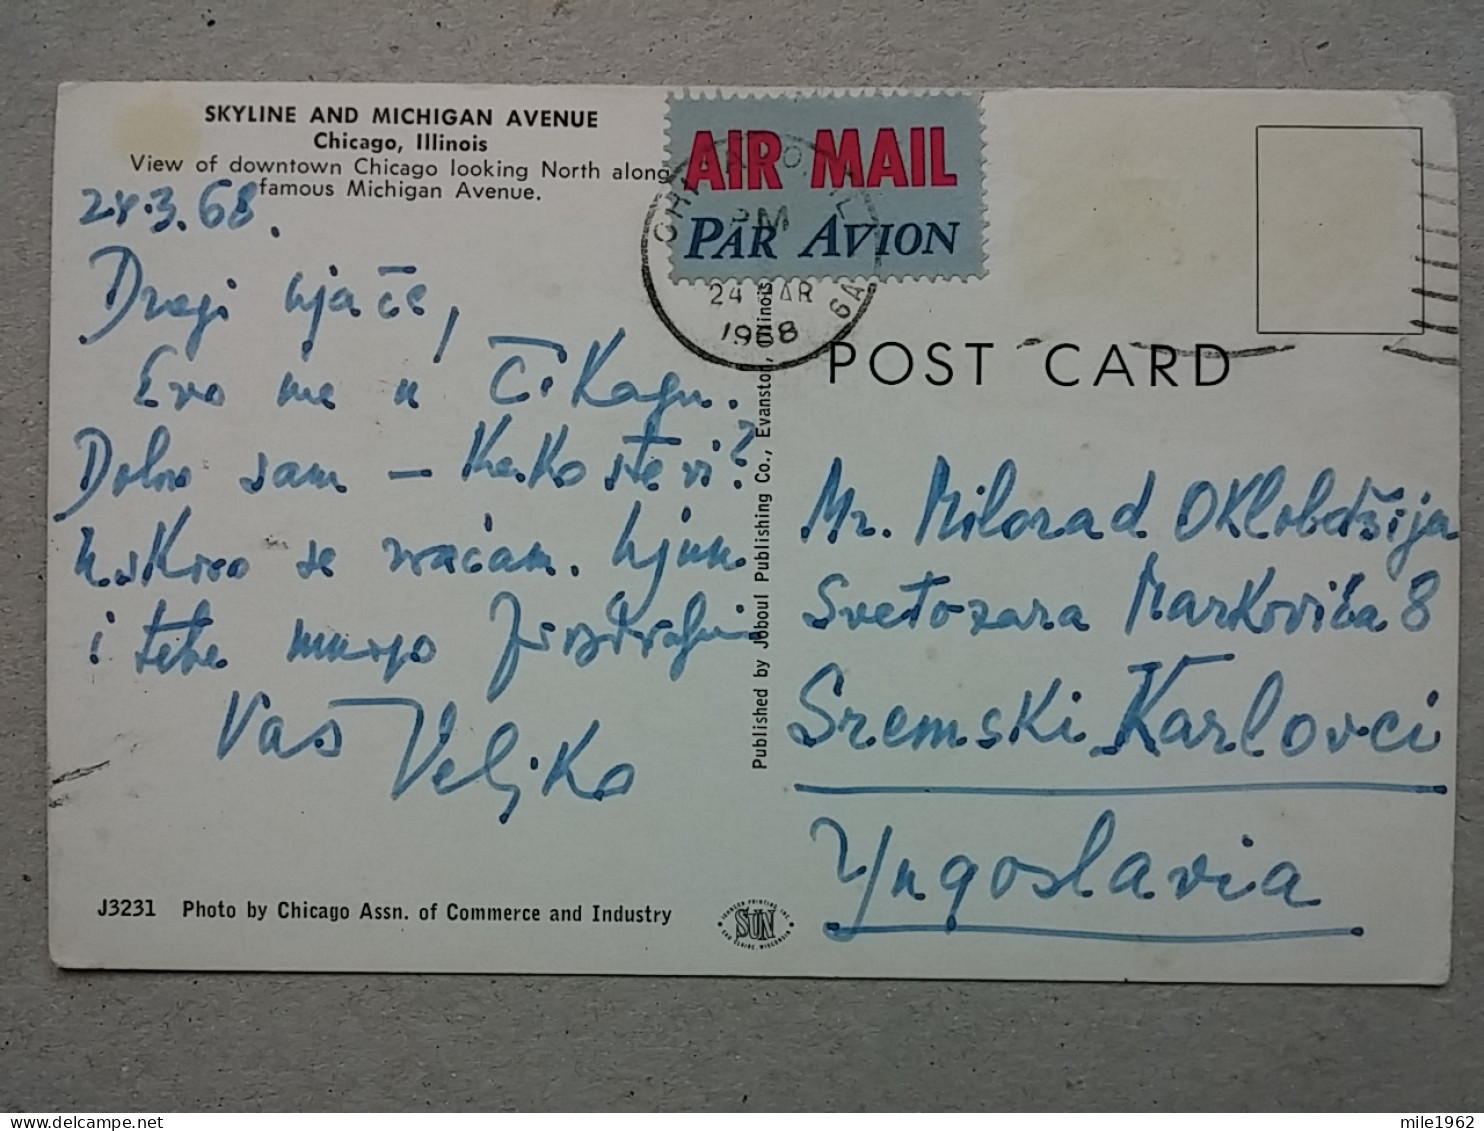 SKYLINE AND MICHIGAN AVENUE
Chicago, Illinois
View of downtown Chicago looking North along
famous Michigan Avenue.
AIR MAIL
PAR AVION
PM
24 MAR
1968
28.3.68.
Dragi ujače,
Evo me u Čikagu.
Dobro sam – Kako ste vi?
Uskoro se vraćam. Ujnu
i tebe mnogo pozdravlja
Vaš Veljko
POST CARD
Mr. Milorad Oklobdžija
Svetozara Markovića 8
Sremski Karlovci
Yugoslavia
Published by Joboul Publishing Co., Evanston, Illinois
J3231 Photo by Chicago Assn. of Commerce and Industry
JOHNSON PRINTING INC.
SUN
EAU CLAIRE, WISCONSIN
mile1962